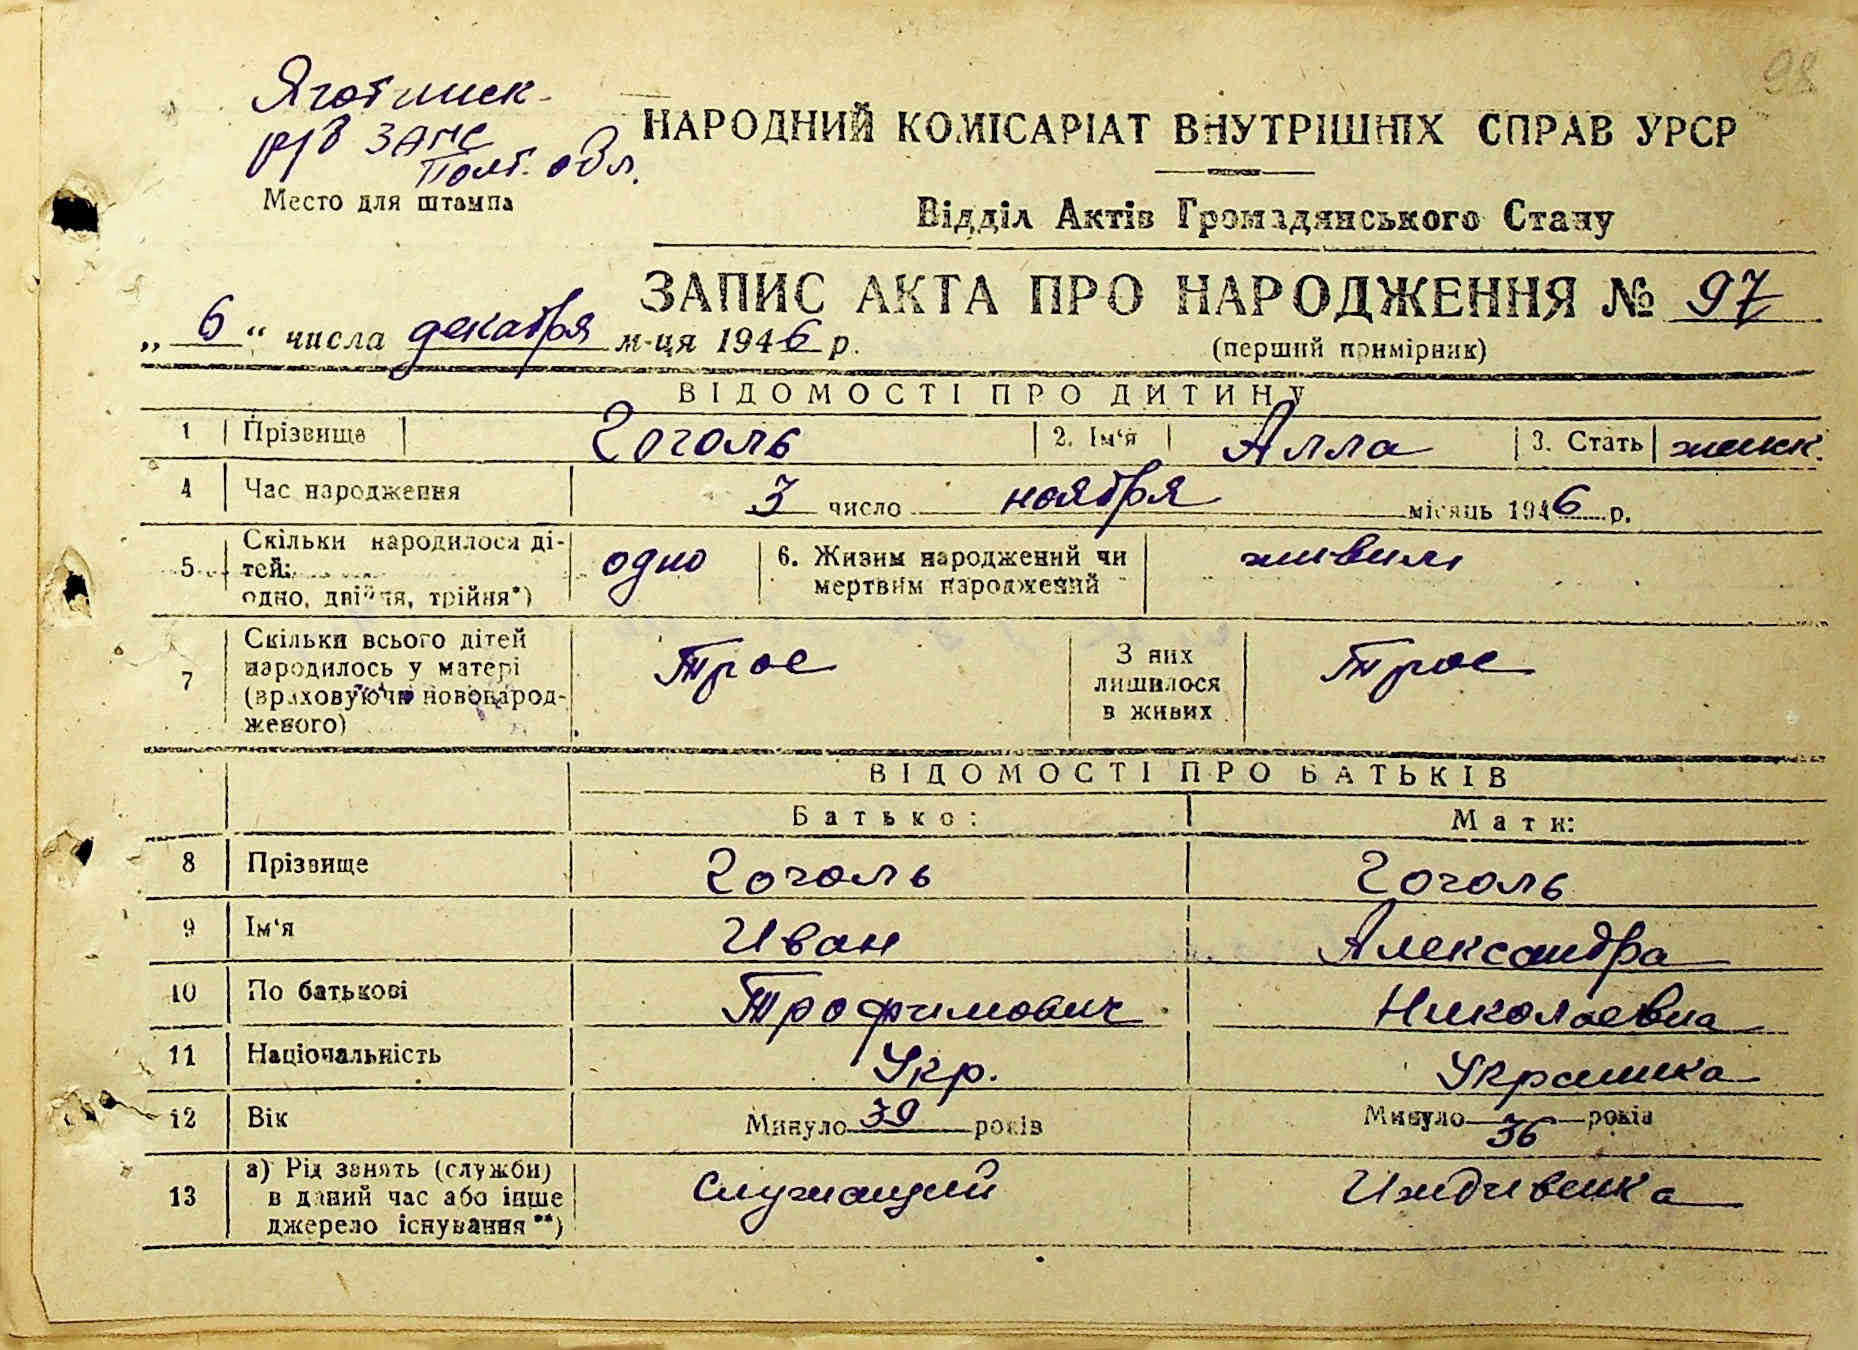 98
Яготинск-
р/в ЗАГС
Полт. обл.
Место для штампа
НАРОДНИЙ КОМІСАРІАТ ВНУТРІШНІХ СПРАВ УРСР
Відділ Актів Громадянського Стану
ЗАПИС АКТА ПРО НАРОДЖЕННЯ № 97
„ 6 “ числа декабря м-ця 1946 р.
(перший примірник)
ВІДОМОСТІ ПРО ДИТИНУ
1 Прізвище Гоголь 2. Ім‘я Алла 3. Стать женск.
4 Час народження 3 число ноября місяць 1946 р.
5 Скільки народилося ді-
тей:
одно, двійня, трійня*)
одно
6. Живим народжений чи
мертвим народжений
живым
7 Скільки всього дітей
народилось у матері
(враховуючи новонарод-
женого)
Трое
З них
лишилося
в живих
Трое
ВІДОМОСТІ ПРО БАТЬКІВ
Батько: Мати:
8 Прізвище Гоголь Гоголь
9 Ім‘я Иван Александра
10 По батькові Трофимович Николаевна
11 Національність Укр. Украинка
12 Вік Минуло 39 років Минуло 36 років
13 а) Рід занять (служби)
в даний час або інше
джерело існування**)
Служащий Иждивенка